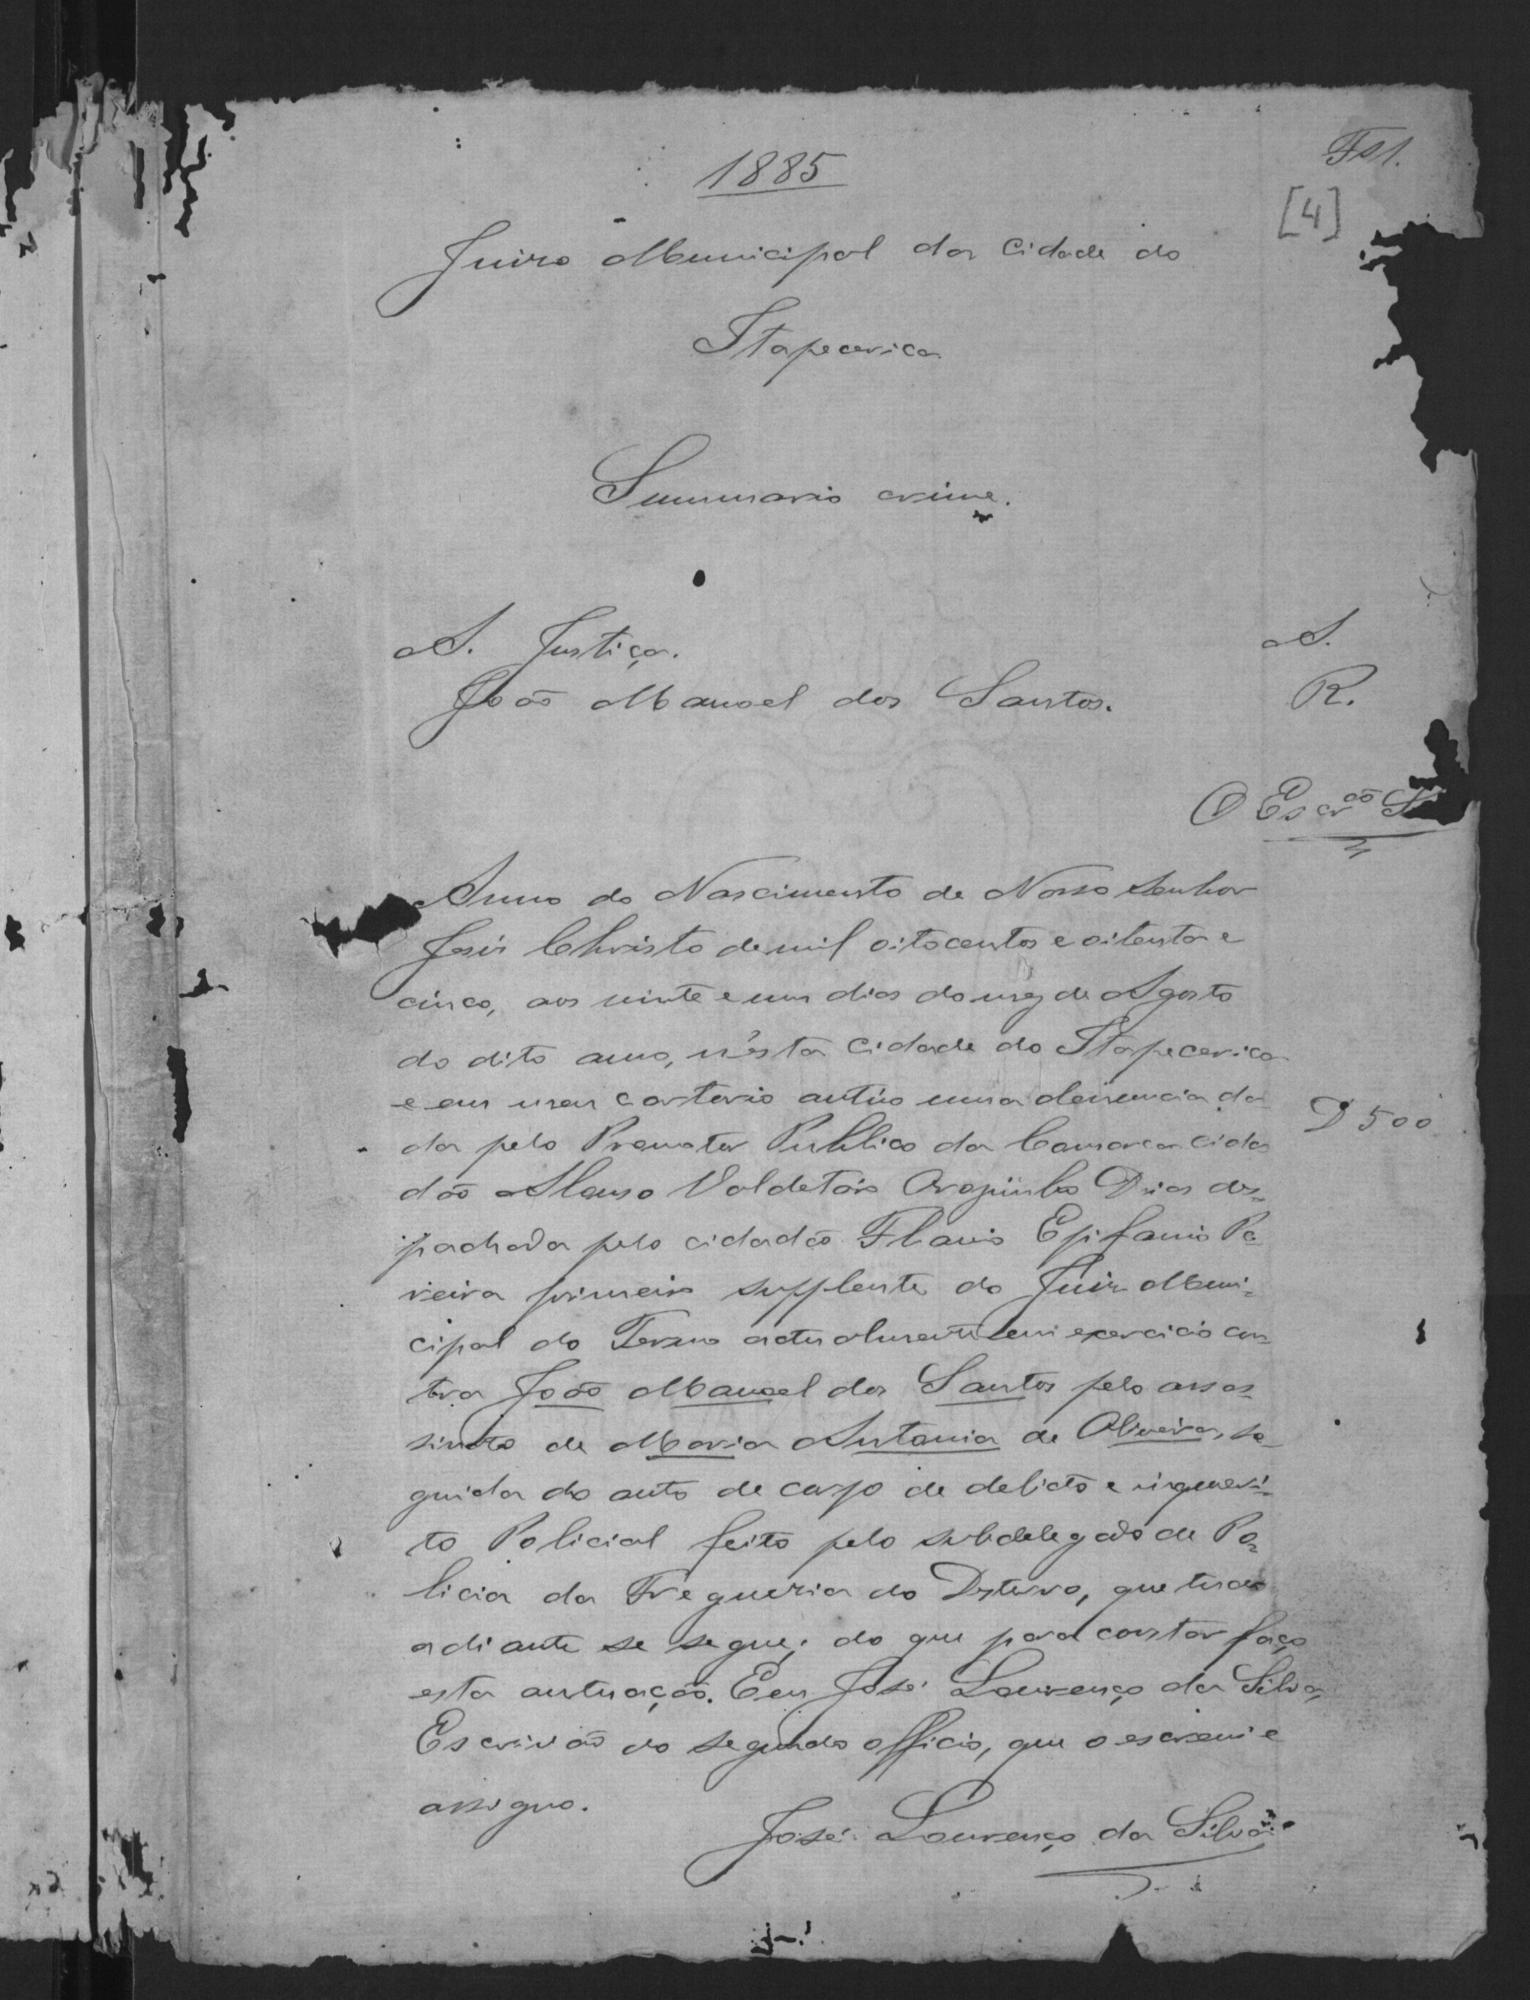 Fs 1.
[4]
1885
Juizo Municipal da Cidade do
Itapecerica
Summario crime.
A. Justiça. A.
João Manoel dos Santos. R.
O Escr.ão S
Anno do Nascimento de Nosso Senhor
Jesus Christo de mil oitocentos e oitenta e
cinco, aos vinte e um dias do mez de Agosto
do dito anno, n'esta Cidade do Itapecerica
e em meu cartorio autúo uma denuncia da-
da pelo Promotor Publico da Comarca cida- D 500
dão Valdetaro Dias des-
pachada pelo cidadão Flavio Epifanio Pe-
reira primeiro supplente do Juiz Muni-
cipal do Termo actualmente em exercicio con-
tra João Manoel dos Santos pelo assas-
sinato de Maria Antonia de Oliveira, se-
guida do auto de corpo de delicto e inqueri-
to Policial feito pelo subdelegado de Po-
licia da Freguezia do Desterro, que tudo
adiante se segue; do que para constar faço
esta autuação. Eeu José Lourenço da Silva,
Escrivão do segundo officio, que o escrevi e
assigno.
José Lourenço da Silva